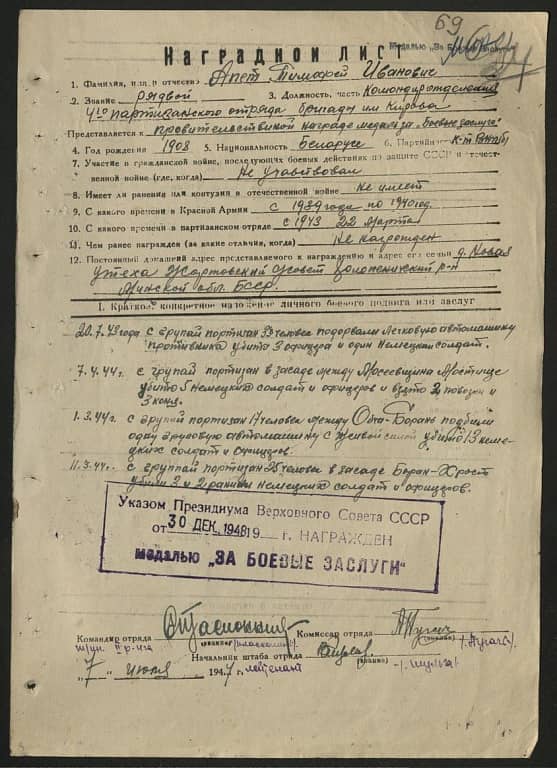 69
Медалью „За Боевые заслуги"
Наградной лист
1. Фамилия, имя и отчество Апет Тимофей Иванович
2. Звание рядовой 3. Должность, часть Командир отделения
4го партизанского отряда бригады им Кирова
Представляется к правительственной награде медаль за „Боевые заслуги"
4. Год рождения 1908 5. Национальность Беларус 6. Партийность К-т
7. Участие в гражданской войне, последующих боевых действиях по защите СССР и отечест-
венной войне (где, когда) Не участвовал
8. Имеет ли ранения или контузии в отечественной войне Не имеет
9. С какого времени в Красной Армии с 1939 года по 1940 год
10. С какого времени в партизанском отряде с 1943 22 Марта
11. Чем ранее награжден (за какие отличия, когда) Не награжден
12. Постоянный домашний адрес представляемого к награждению и адрес его семьи д. Новая
Утеха Жартовский с/совет р-н
Минской обл. БССР.
I. Краткое конкретное изложение личного боевого подвига или заслуг
20.7.43 года с групай партизан 33 человек подорвали Легковую автомашину
противника убито 3 офицера и один немецкий солдат.
7.4.44г. с групай партизан в засаде между
убито 5 немецких солдат и офицеров и взято 2 повозки и
3 коня.
1.3.44г. с групай партизан 17 человек между Ольха-Борань подбили
одну грузовую автомашину с живой силой убито 13 неме-
цких солдат и офицеров.
11.3.44г. с группай партизан 25 человек в засаде Боран-Хрост
убили 3 и 2 ранили немецких солдат и офицеров.
Указом Президиума Верховного Совета СССР
от 30 ДЕК. 1948 19 г. НАГРАЖДЕН
медалью „ЗА БОЕВЫЕ ЗАСЛУГИ"
Командир отряда Комиссар отряда
(звание) (звание)
Начальник штаба отряда (звание) /Шульга/
„7" июля 1947 г. лейтенант